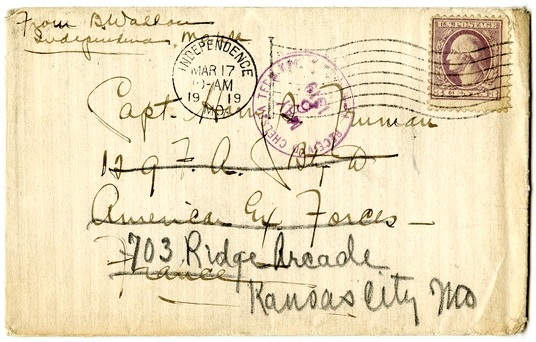 From B. Wallace
Independence, Mo.
INDEPENDENCE
MAR 17
-AM
1919
MO.
U.S. POSTAGE
RECEIVED
Capt. Harry S. Truman
129 F.A. Bty D
American Ex Forces
France
703 Ridge Arcade
Kansas City Mo